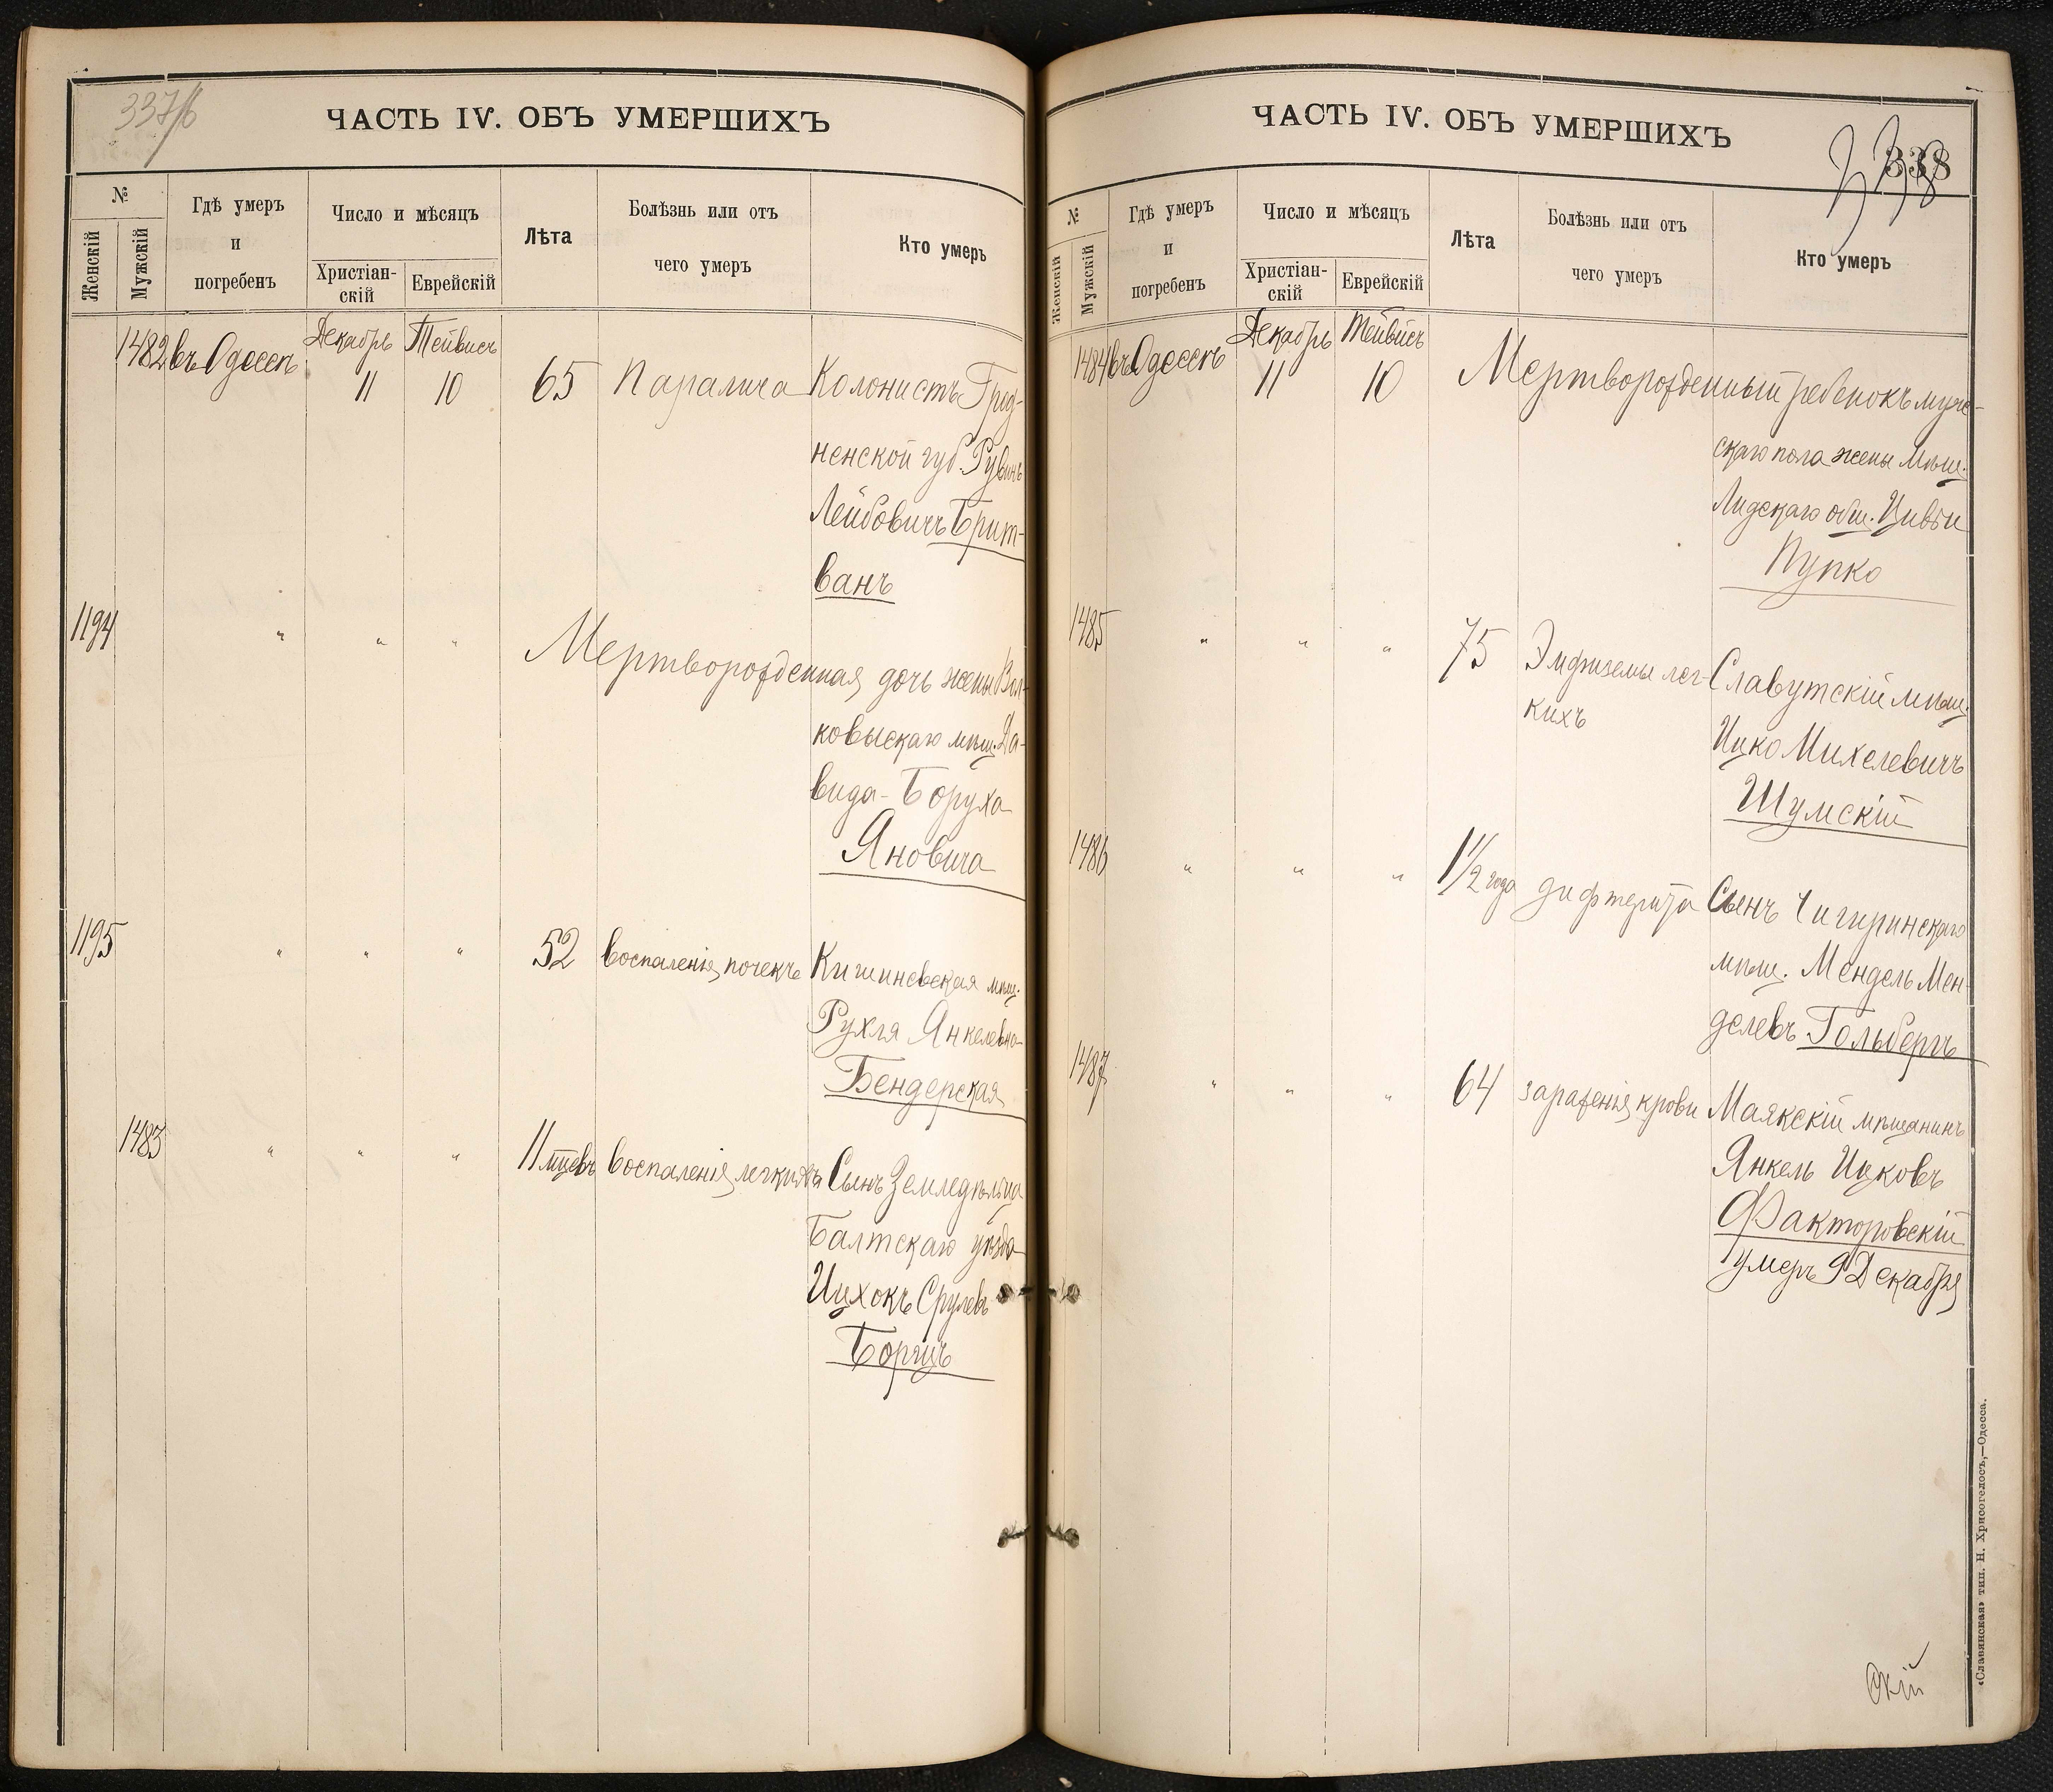 337/б
ЧАСТЬ IV. ОБЪ УМЕРШИХЪ
№
Женскій
Мужскій
Гдѣ умеръ
и
погребенъ
Число и мѣсяцъ
Христіан-
скій
Еврейскій
Лѣта
Болѣзнь или отъ
чего умеръ
Кто умеръ
1482 въ Одессѣ Декабрь 11 Тейвисъ 10 65 Паралича Колонистъ Грод-
ненской губ. Рувинъ
Лейбовичъ Брит-
ванъ
1194 " " " Мертворожденная дочь жены Вол-
ковыскаго мѣщ. Да-
вида-Боруха
Яновича
1195 " " " 52 воспаленія почекъ Кишиневская мѣщ.
Рухля Янкелевна
Бендерская
1483 " " " 11 мцевъ воспаленія легкихъ Сынъ Земледѣльца
Балтскаго уѣзда
Ицхокъ Срулевъ
Борщъ
ЧАСТЬ IV. ОБЪ УМЕРШИХЪ
338
338
№
Женскій
Мужскій
Гдѣ умеръ
и
погребенъ
Число и мѣсяцъ
Христіан-
скій
Еврейскій
Лѣта
Болѣзнь или отъ
чего умеръ
Кто умеръ
1484 въ Одессѣ Декабрь 11 Тейвисъ 10 Мертворожденный ребенокъ муже-
скаго пола жены Мѣщ.
Лидскаго общ. Цивьи
Пупко
1485 " " " 75 Эмфиземы лег-
кихъ Славутскій мѣщ.
Ицко Михелевичъ
Шумскій
1486 " " " 1 1/2 года дифтерита Сынъ Чигиринскаго
мѣщ. Мендель Мен-
делевъ Гольбергъ
1487 " " " 64 зараженія крови Маякскій мѣщанинъ
Янкель Ицковъ
Факторовскій
умеръ 9 Декабря
скій
«Славянская» тип. Н. Хрисогелосъ,—Одесса.